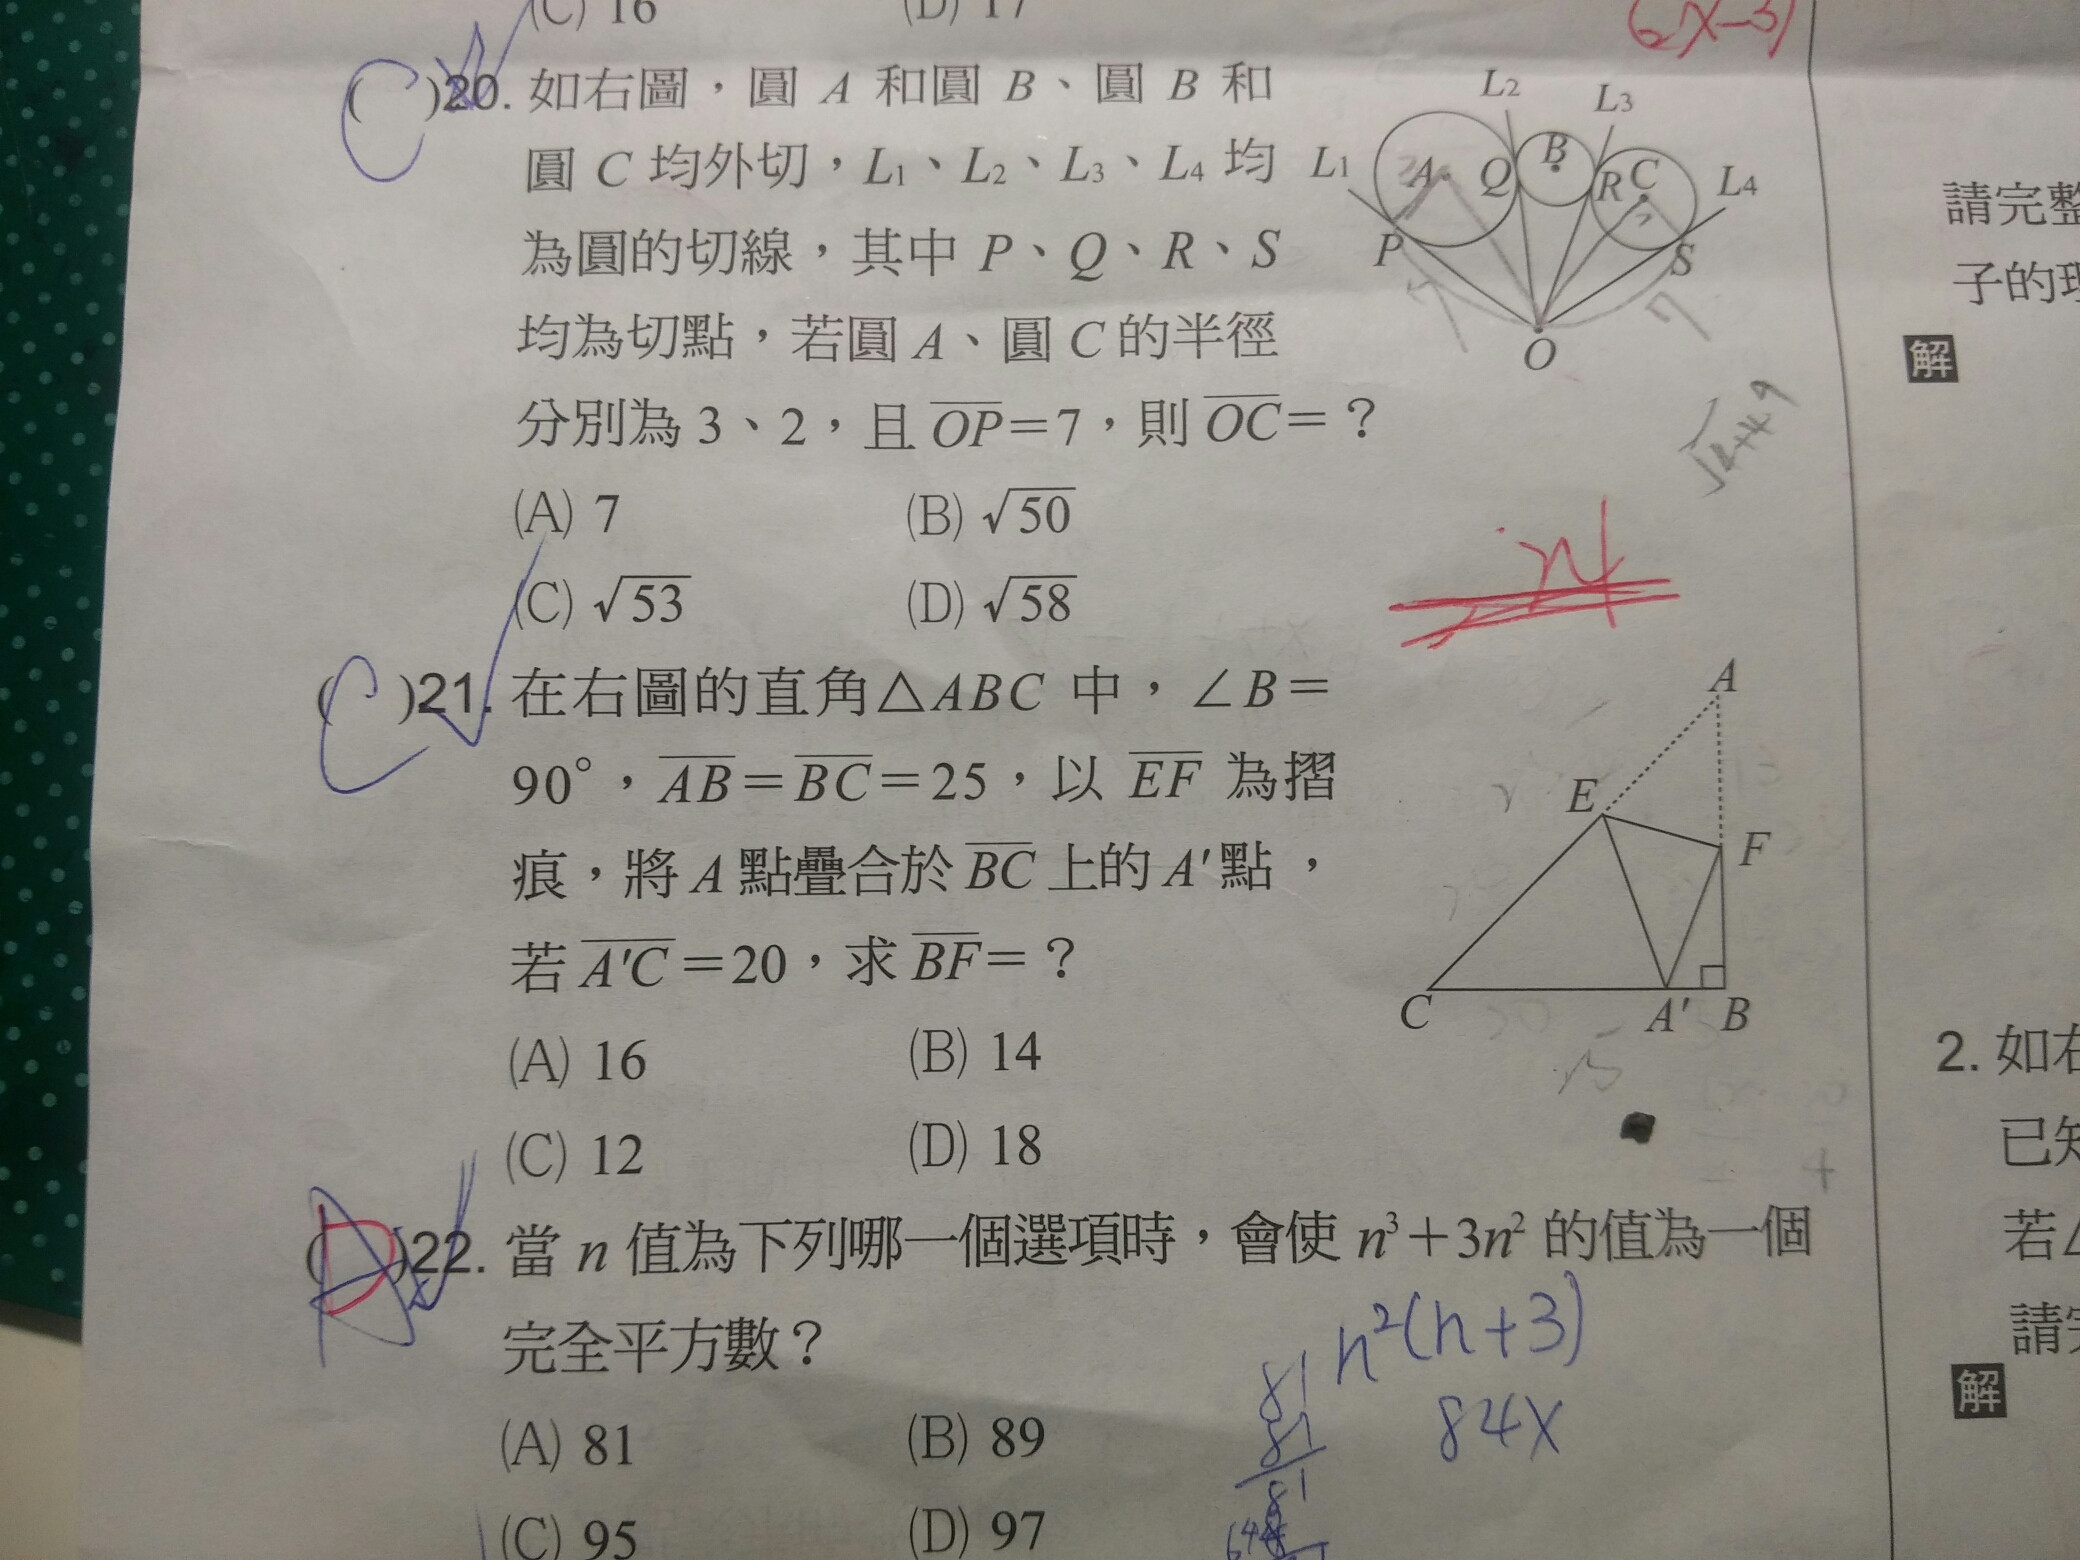 (C) 16
(D) 17
6x-3)
(C)20. 如右圖，圓 A 和圓 B、圓 B 和
圓 C 均外切，L1、L2、L3、L4 均
為圓的切線，其中 P、Q、R、S
均為切點，若圓 A、圓 C 的半徑
分別為 3、2，且 OP=7，則 OC=？
L1
L2
L3
L4
A
Q
B
R
C
P
S
O
7
7
√4+49
(A) 7
(B) √50
(C) √53
(D) √58
(C)21. 在右圖的直角△ABC 中，∠B=
90°，AB=BC=25，以 EF 為摺
痕，將 A 點疊合於 BC 上的 A'點，
若 A'C=20，求 BF=？
A
E
F
C
A'
B
(A) 16
(B) 14
(C) 12
(D) 18
(D)22. 當 n 值為下列哪一個選項時，會使 n³+3n² 的值為一個
完全平方數？
n²(n+3)
84X
81
81
81
(A) 81
(B) 89
(C) 95
(D) 97
請完整
子的理
解
2. 如右
已知
若△
請完
解